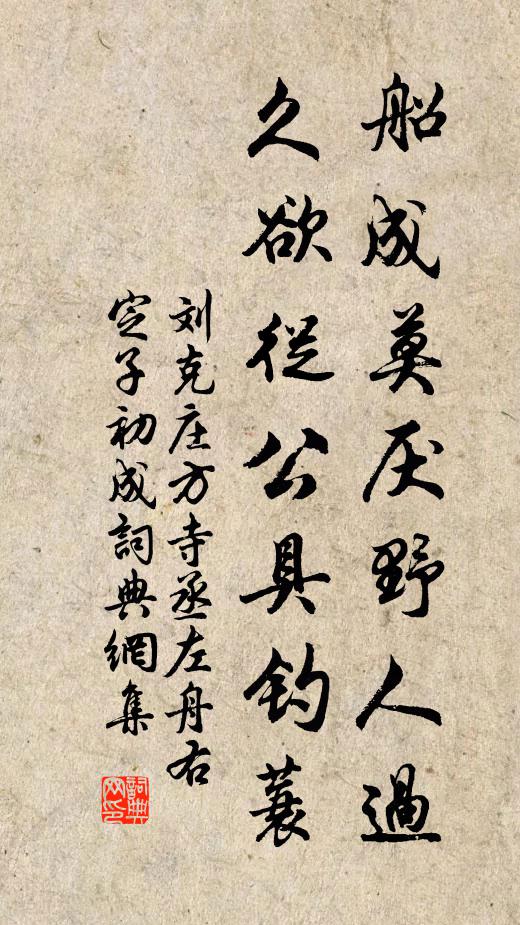 船成莫厌野人過
久欲從公具钓蓑
刘克庄方寺丞左舟右
定子初成詞典網集
詞典網印